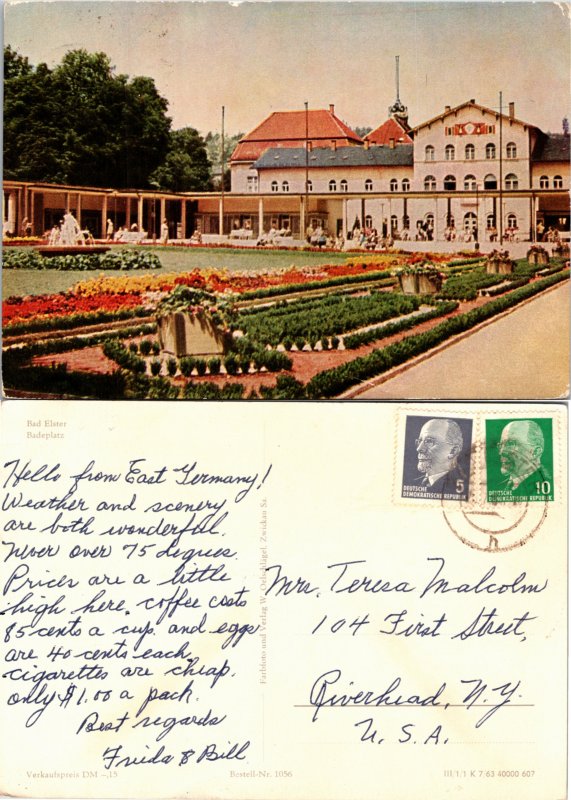 Bad Elster
Badeplatz
Hello from East Germany!
Weather and scenery
are both wonderful.
Never over 75 degrees.
Prices are a little
high here. coffee costs
85 cents a cup. and eggs
are 40 cents each
cigarettes are cheap.
only $1.00 a pack.
Best regards
Frieda & Bill
Verkaufspreis DM -,15
Bestell-Nr. 1056
Farbfoto und Verlag W. Oelschlägel, Zwickau Sa.
5
DEUTSCHE
DEMOKRATISCHE REPUBLIK
10
DEUTSCHE
DEMOKRATISCHE REPUBLIK
h
Mrs. Teresa Malcolm
104 First Street,
Riverhead, N.Y.
U.S.A.
III/1/1 K 7/63 40000 607